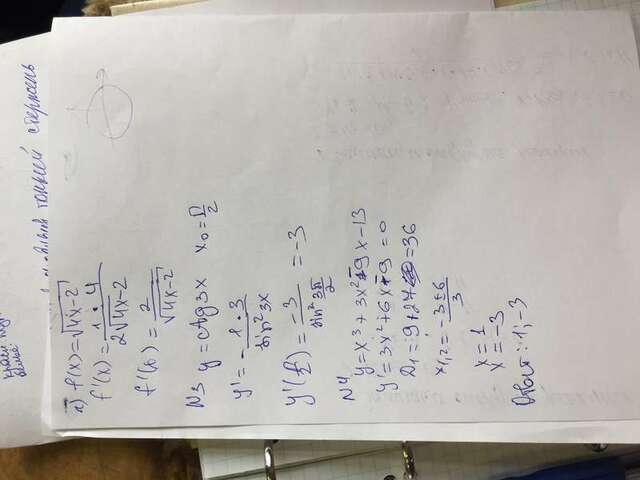 тонкий стержень
л) f(x)=√4x-2
f'(x)= 1·4 / 2√4x-2
f'(x)= 2 / √4x-2
N3 y=ctg3x x₀=π/2
y'=- 1·3 / sin²3x
y'(π/2)= -3 / sin² 3π/2 =-3
N4
y=x³+3x²-9x-13
y'=3x²+6x-9=0
D₁=9+27=36
x₁,₂= -3±6 / 3
x=1
x=-3
Ответ: 1; -3